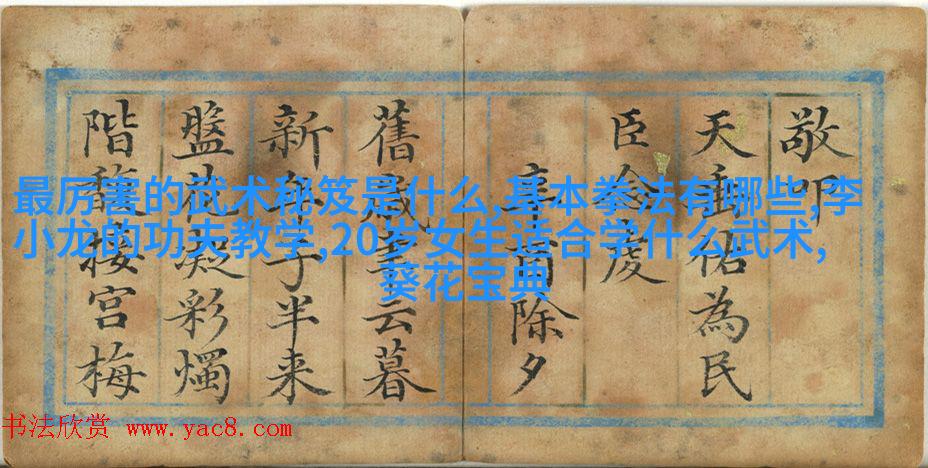 最厉害的武术秘笈是什么,基本拳法有哪些,李
小龙的功夫教学,20岁女生适合学什么武术,
葵花宝典
敬叩
天佑為民
臣虔
除夕
舊歲聿云暮
新年子半来
盤花凝彩燭
階接宮梅
书法欣赏 www.yac8.com